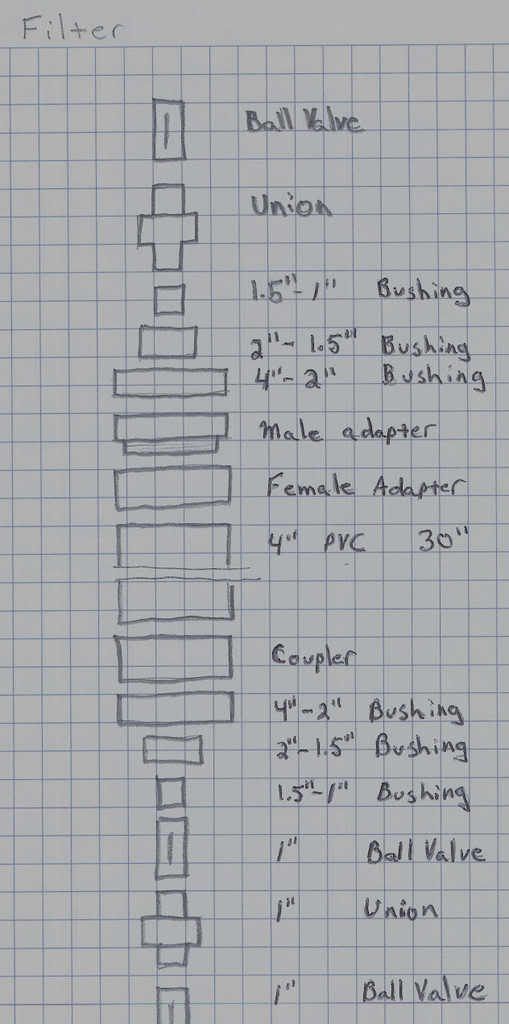 Filter
Ball Valve
Union
1.5"-1" Bushing
2"-1.5" Bushing
4"-2" Bushing
Male adapter
Female Adapter
4" PVC 30"
Coupler
4"-2" Bushing
2"-1.5" Bushing
1.5"-1" Bushing
1" Ball Valve
1" Union
1" Ball Valve